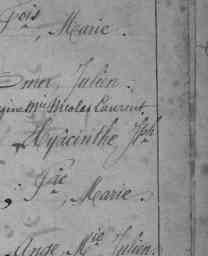 Fois
, Marie.
Omer, Julien.
gine Mie Nicolas Laurent
Hyacinthe Jph
, Fse, Marie.
Ange, Mie Julien.